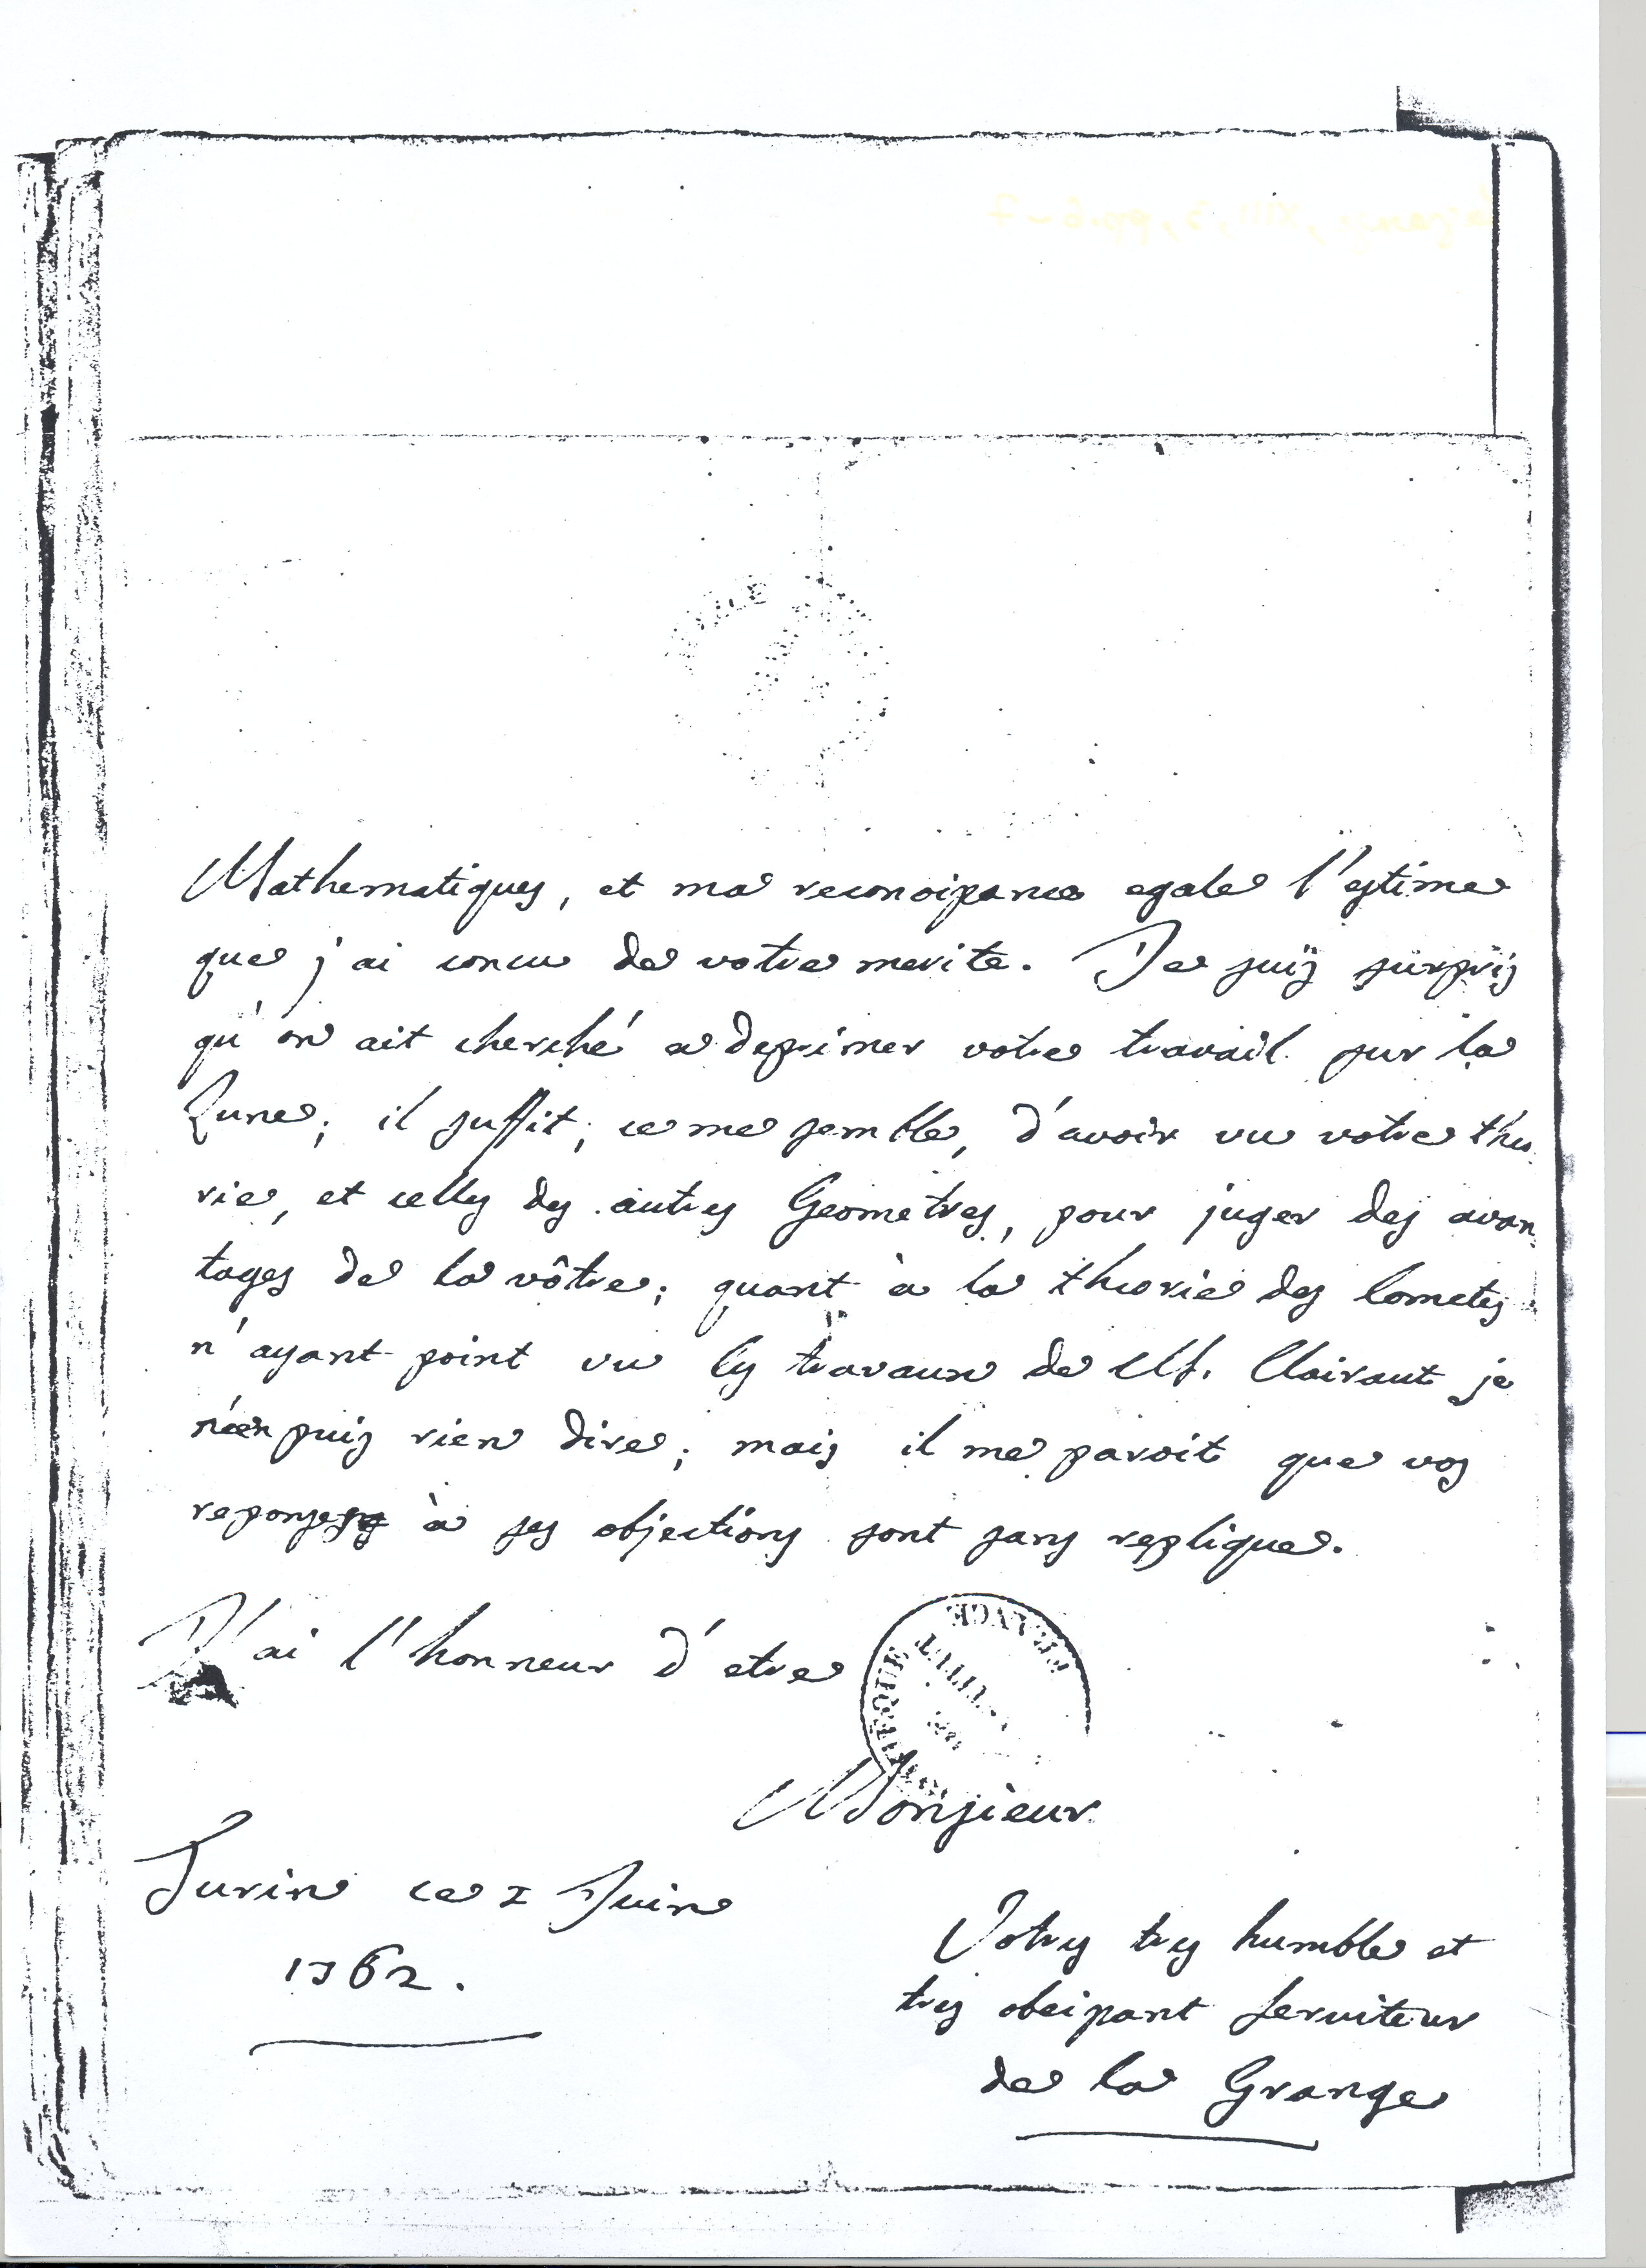 Mathematiques, et ma reconoissance egale l'estime
que j'ai concu de votre merite. Je suis surpris
qu'on ait cherché a deprimer votre travail sur la
Lune; il suffit, ce me semble, d'avoir vu votre theo
rie, et celles des autres Geometres, pour juger des avan
tages de la vôtre; quant à la theorie des Cometes
n'ayant point vu les travaux de M. Clairaut je
n'en puis rien dire; mais il me paroit que vos
reponses à ses objections sont sans replique.
J'ai l'honneur d'etre
Monsieur
Turin ce 2 Juin
1762.
Votres tres humble et
tres obeissant serviteur
de la Grange